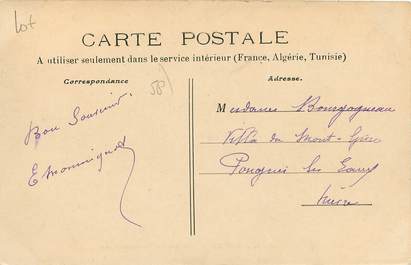 Lot
CARTE POSTALE
A utiliser seulement dans le service intérieur (France, Algérie, Tunisie)
Correspondance
58
Adresse.
Bon Souvenir
Mesdames Bourgogneau
Villa du Mont-Givre
Pougues les Eaux
Nièvre